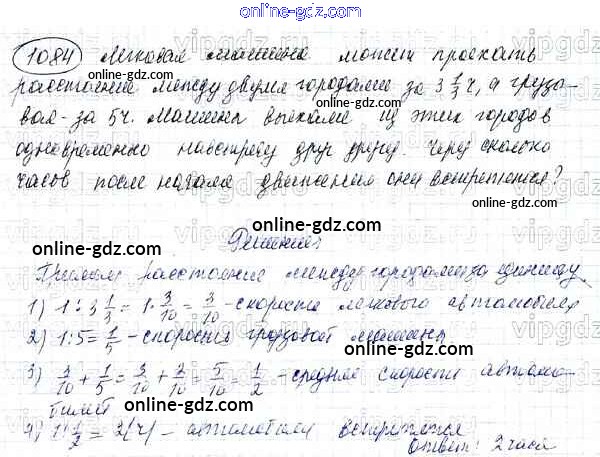 online-gdz.com
1084 Легковая машина может проехать
online-gdz.com
расстояние между двумя городами за 3 1/3 ч, а грузо-
вая - за 5 ч. Машины выехали из этих городов
одновременно навстречу друг другу. Через сколько
часов после начала движения они встретятся?
online-gdz.com
online-gdz.com
Решение
Примем расстояние между городами за единицу
online-gdz.com
1) 1 : 3 1/3 = 1 · 3/10 = 3/10 - скорость легкового автомобиля
2) 1 : 5 = 1/5 - скорость грузовой машины
online-gdz.com
3) 3/10 + 1/5 = 3/10 + 2/10 = 5/10 = 1/2 - средняя скорость автомо-
билей
online-gdz.com
4) 1 : 1/2 = 2 (ч) - автомобили встретятся
Ответ: 2 часа
online-gdz.com
vipgdz.ru